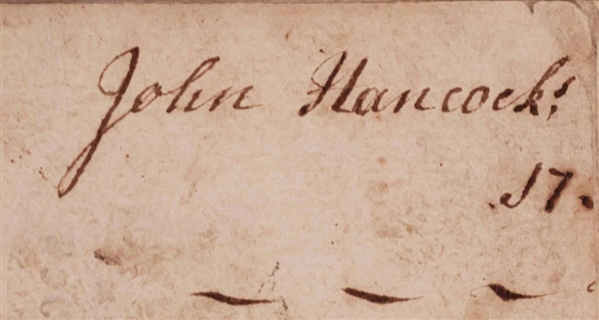 John Hancock's
17.